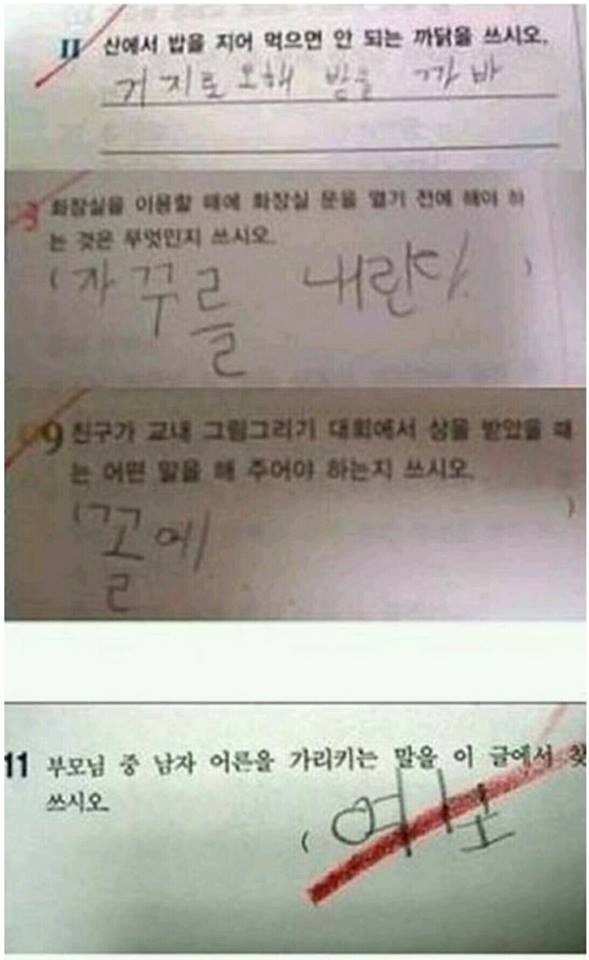 11 산에서 밥을 지어 먹으면 안 되는 까닭을 쓰시오.
거지로 오해 받을 까바
3 화장실을 이용할 때에 화장실 문을 열기 전에 해야 하
는 것은 무엇인지 쓰시오.
(자꾸를 내린다.)
9 친구가 교내 그림그리기 대회에서 상을 받았을 때
는 어떤 말을 해 주어야 하는지 쓰시오.
(꼴에 )
11 부모님 중 남자 어른을 가리키는 말을 이 글에서 찾
쓰시오.
(여보